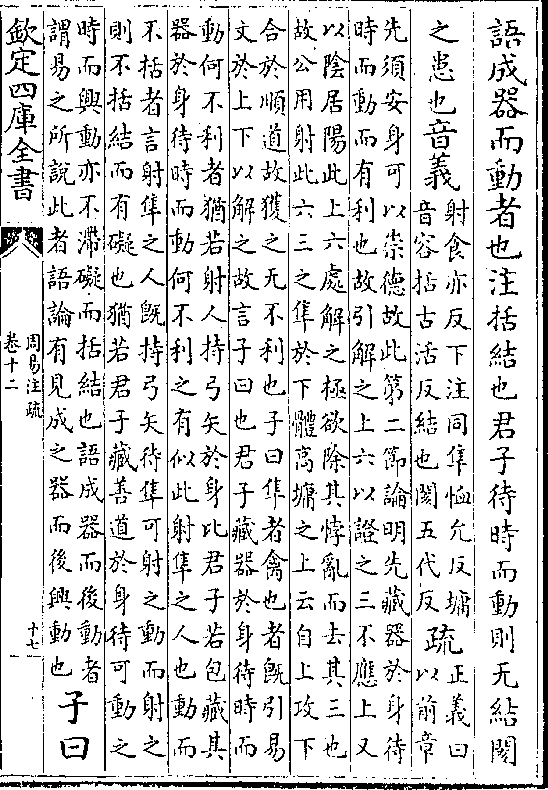 語成器而動者也注括結也君子待時而動則无結閡
之患也音義射食亦反下注同隼恤允反墉
音容括古活反結也閡五代反疏正義曰
以前章
先須安身可以崇德故此第二節論明先藏器於身待
時而動而有利也故引解之上六以證之三不應上又
以陰居陽此上六處解之極欲除其悖亂而去其三也
故公用射此六三之隼於下體高墉之上云自上攻下
合於順道故獲之无不利也子曰隼者禽也者既引易
文於上下以解之故言子曰也君子藏器於身待時而
動何不利者猶若射人持弓矢於身此君子若包藏其
器於身待時而動何不利之有似此射隼之人也動而
不括者言射隼之人既持弓矢待隼可射之動而射之
則不括結而有礙也猶若君子藏善道於身待可動之
時而興動亦不滯礙而括結也語成器而後動者
謂易之所說此者語論有見成之器而後興動也子曰
欽定四庫全書
周易注疏
卷十二
十七